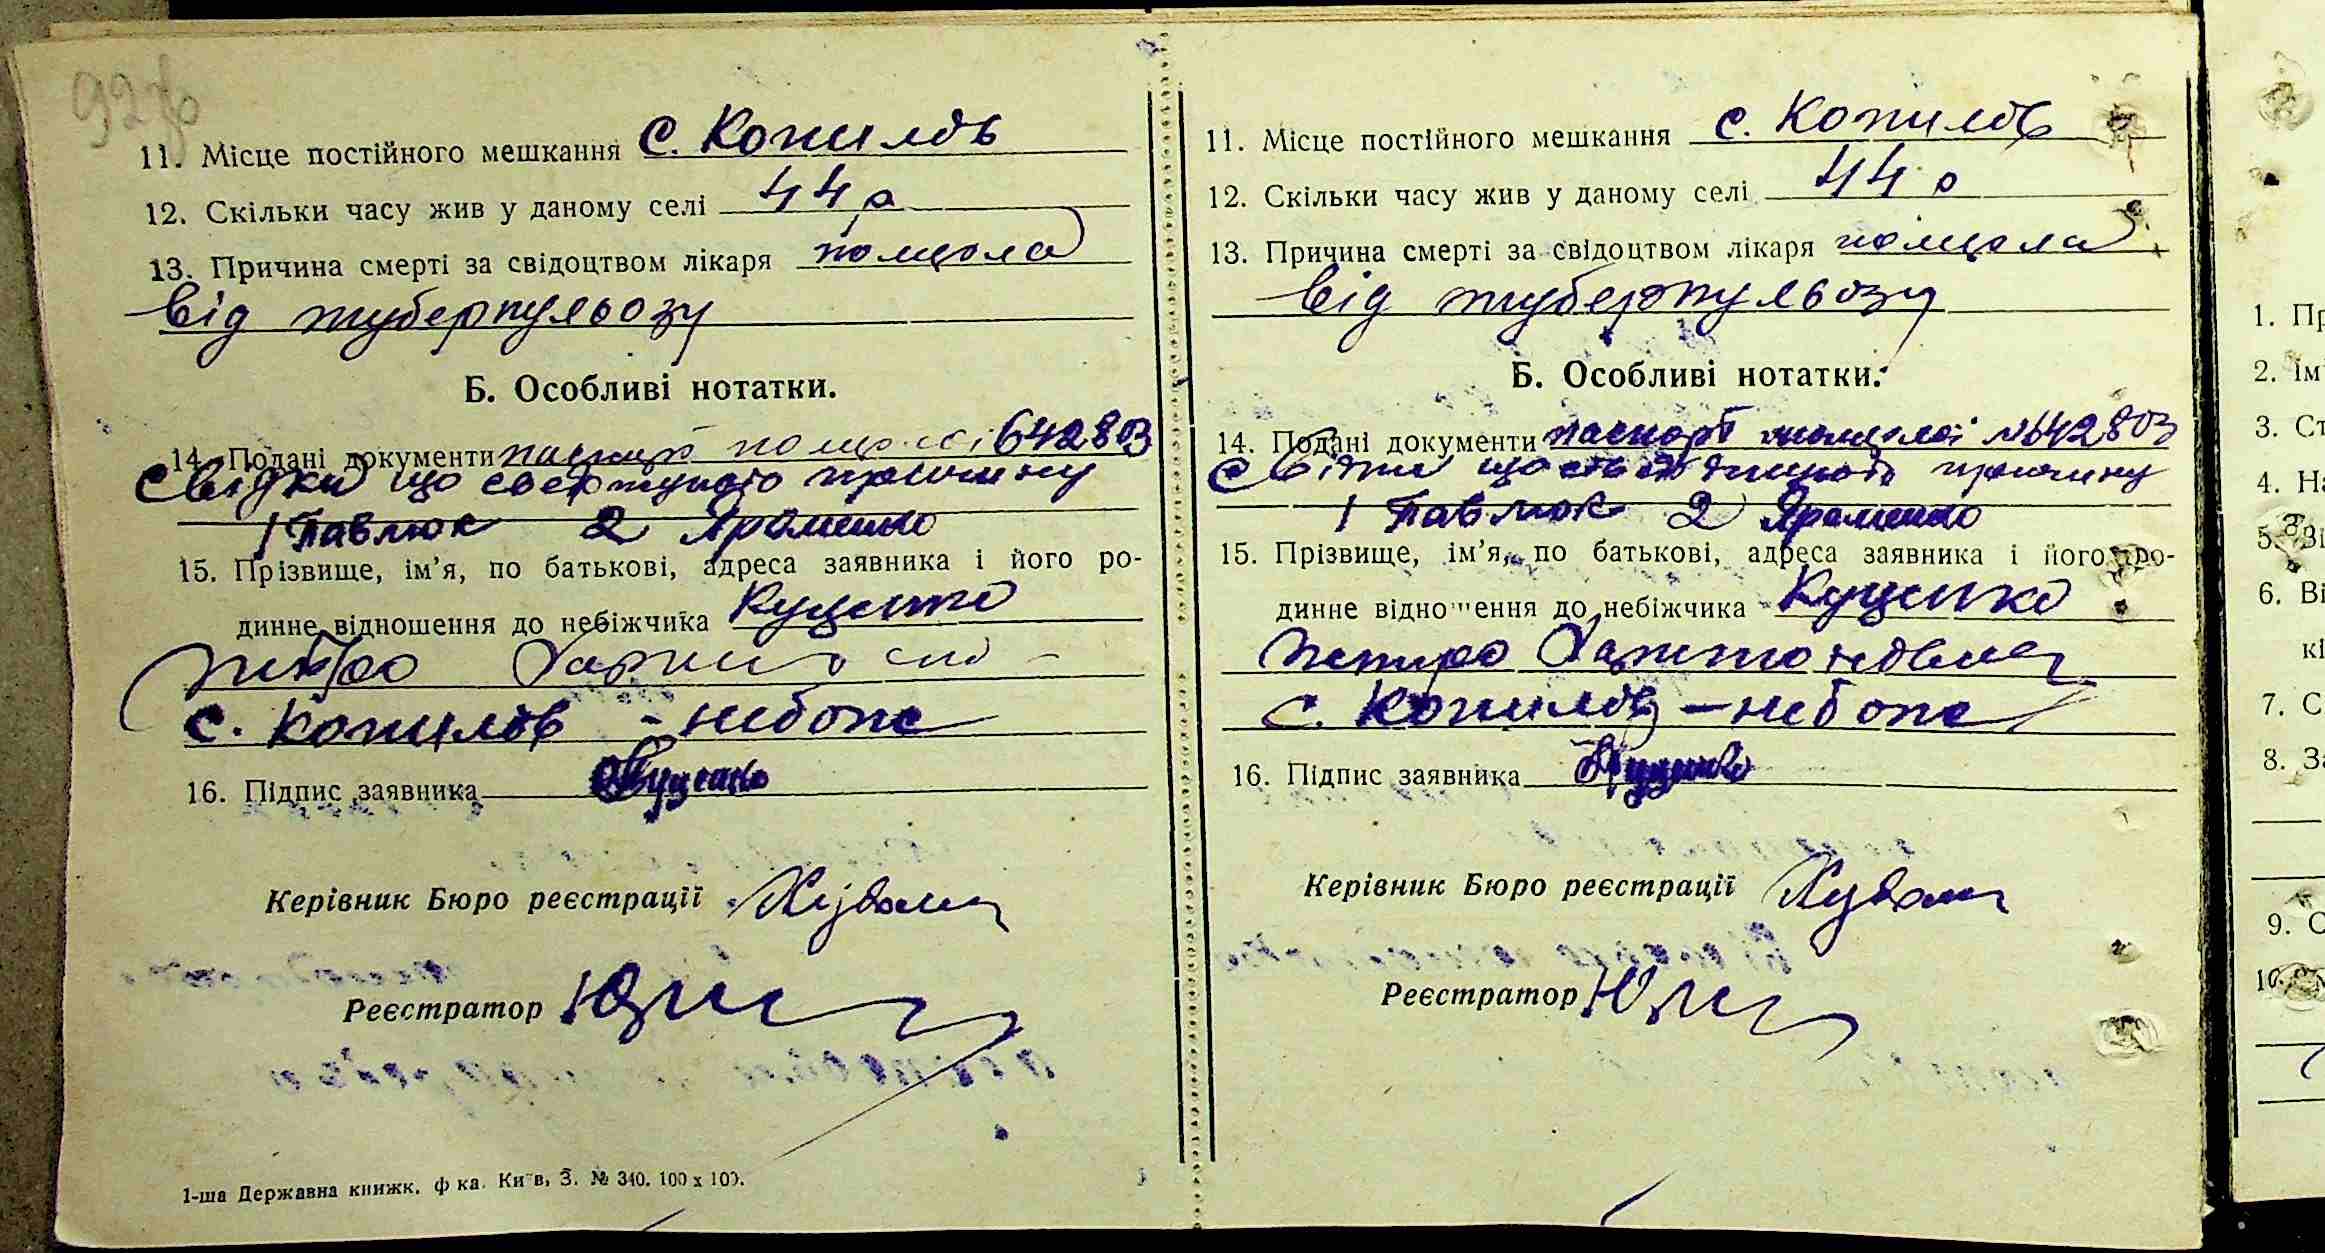 92
11. Місце постійного мешкання с. Копилов
12. Скільки часу жив у даному селі 44 р
13. Причина смерті за свідоцтвом лікаря померла
від туберкульозу
Б. Особливі нотатки.
14. Подані документи паспорт померлої 642803
свідки що свержують причину
1 Павлюк 2 Яременко
15. Прізвище, ім'я, по батькові, адреса заявника і його ро-
динне відношення до небіжчика Куценко
Петро
с. Копилов - небопе
16. Підпис заявника Куценко
Керівник Бюро реєстрації
Реєстратор
1-ша Державна книжк. ф ка. Київ, З. № 340. 100 х 100.
11. Місце постійного мешкання с. Копилов
12. Скільки часу жив у даному селі 44 р
13. Причина смерті за свідоцтвом лікаря померла
від туберкульозу
Б. Особливі нотатки.
14. Подані документи паспорт померлої №642803
свідки що причину
1 Павлюк 2 Яременко
15. Прізвище, ім'я, по батькові, адреса заявника і його ро-
динне відношення до небіжчика Куценко
Петро
с. Копилов - небопе
16. Підпис заявника Куценко
Керівник Бюро реєстрації
Реєстратор
1. Пр
2. Ім'
3. Ст
4. На
5. Зі
6. Ві
кі
7. С
8. За
9. С
10.